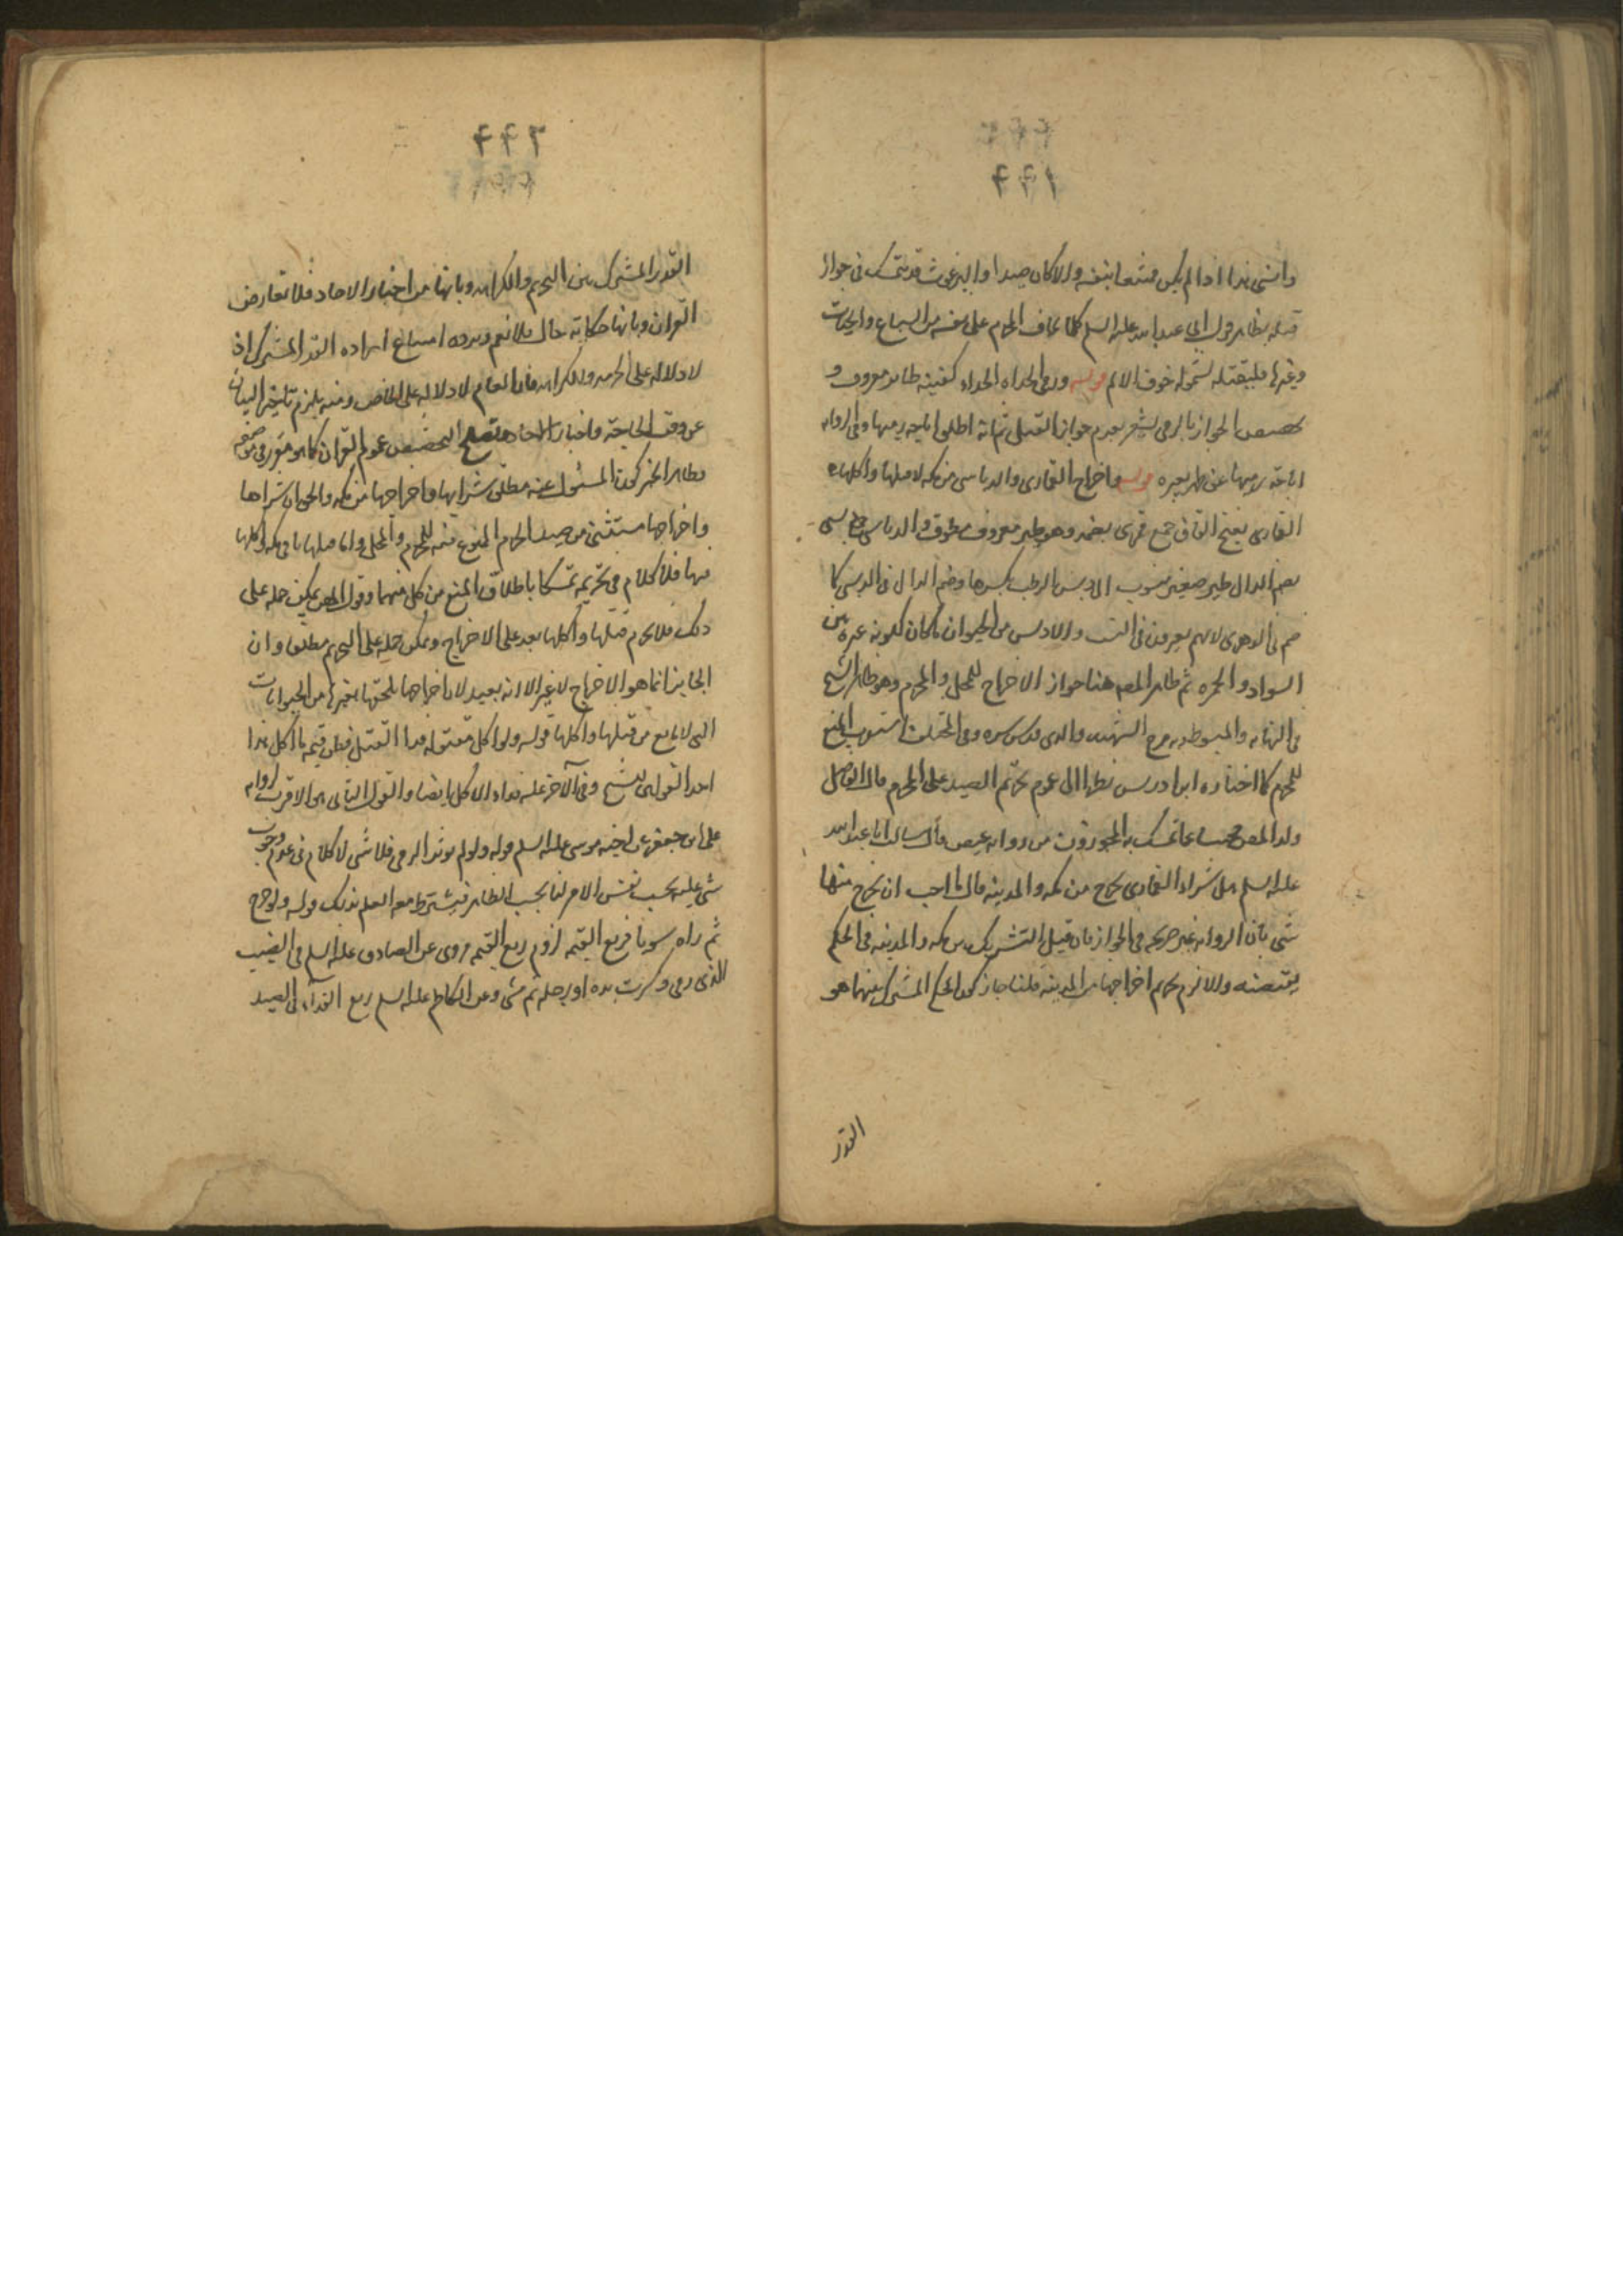 ۲۲۱
وانسى هذا اذا لم يكن ممتنعا بنفسه والا كان صيدا والبرغوث قد يتمسك فى جواز
قتله بظاهر قول ابى عبد الله عليه السلم كلما يخاف المحرم على نفسه من السباع والحيات
وغيرها فليقتله لشموله خوف الالم قوله ورمى الحداه الحداه كعنبه طائر معروف و
تخصيص الجواز بالرمى يشعر بعدم جواز القتل ثم انه اطلق اباحه رميها وفى الروايه
اباحه رميها عن ظهر بعيره قوله واخراج القمارى والدباسى من مكه لا قتلها واكلها
القمارى بفتح القاف جمع قمرى بضمه وهو طير معروف مطوق والدباسى جمع دبسى
بضم الدال طير صغير منسوب الى دبس الرطب بكسرها وضم الدال فى الدبسى كما
ضم فى الدهرى لانهم يغيرون فى النسب والادبس من الحيوان ما كان كلونه غبره بين
السواد والحمره ثم ظاهر المصـ هنا جواز الاخراج للمحل والمحرم وهو ظاهر الشيخ
فى النهايه والمبسوط وبه صرح الشهيد والدى قدس سره وفى المختلف استوجب المنع
للمحرم كما اختاره ابن ادريس نظرا الى عموم تحريم الصيد على المحرم قال الفاضل
ولد المصـ مجيبا عما تمسك به المجوزون من روايه عيص قال سالت ابا عبد الله
عليه السلم عن شراء القمارى يخرج من مكه والمدينه قال ما احب ان يخرج منها
شى بان الروايه غير صريحه فى الجواز فان قيل التشريك بين مكه والمدينه فى الحكم
يقتضيه والا لزم تحريم اخراجها من المدينه قلنا جاز كون الحكم المشترك بينهما هو
القدر
۲۲۲
القدر المشترك بين التحريم والكراهه وبانها من اخبار الاحاد فلا تعارض
القران وبانها حكايه حال فلا تعم ويرده امتناع اراده القدر المشترك اذ
لا دلاله على الحرمه والكراهه فان العام لا دلاله له على الخاص ومنه يلزم تاخير البيان
عن وقت الحاجه واخبار الاحاد تصلح لتخصيص عموم القران كما هو مقرر فى موضعه
وظاهر الخبر كون المسئول عنه مطلق شرايها واخراجها من مكه والحق ان شراها
واخراجها مستثنى من صيد الحرم الممنوع منه للمحرم والمحل واما قتلها باقى مكه واكلها
فيها فلا كلام فى تحريمه تمسكا باطلاق المنع من كل منهما وقول المصـ يمكن حمله على
ذلك فلا يحرم قتلها واكلها بعد على الاخراج ويمكن حمله على التحريم مطلقا وان
الجايز انما هو الاخراج لا غير الا انه بعيد لان اخراجها يلحقها بغيرها من الحيوانات
التى لا مانع من قتلها واكلها قوله ولو اكل مقتوله فدا القتيل وضمن قيمه ما اكل هذا
احد القولين للشيخ وفى الآخر عليه فداء الاكل ايضا والقول الثانى هو الاقرب لروايه
على ابن جعفر عن اخيه موسى عليه السلم قوله ولو لم يوثر الرمى فلا شى لا كلام فى عدم وجوب
شى عليه بحسب نفس الامر لنا بحسب الظاهر فيشترط معه العلم بذلك قوله ولو جرح
ثم راه سويا فربع القيمه لزوم ربع القيمه مروى عن الصادق عليه السلم فى الظبى
الذى رمى وكسرت يده او رجله ثم مشى وعن الكاظم عليه السلم ربع الفداء فى الصيد